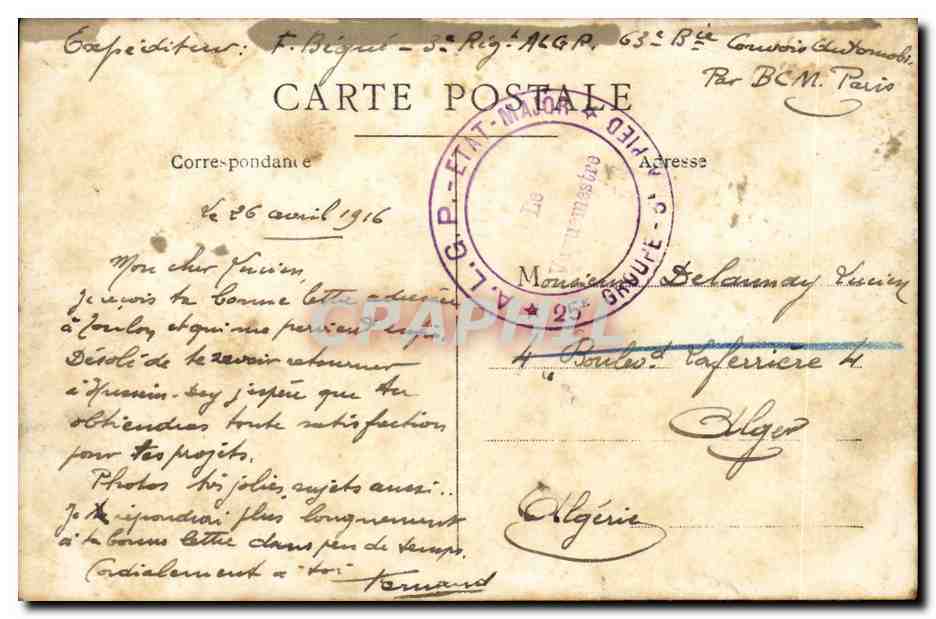 Expéditeur: F. Bégué - 3e Rigt ALGP. 63e Bie Convois Automobi.
Par BCM. Paris
CARTE POSTALE
Correspondance
Adresse
A.L.G.P. - ETAT-MAJOR ★ A PIED
★ 25e GROUPE
Le
Le 26 avril 1916
Mon cher Lucien
Je reçois ta bonne lettre adressée
à Toulon et qui me parvient enfin.
Désolé de te savoir retourner
à Hussein-Dey j'espère que tu
obtiendras toute satisfaction
pour tes projets.
Photos très jolies, sujets aussi..
Je te répondrai plus longuement
à ta bonne lettre dans peu de temps.
Cordialement à toi
Fernand
Monsieur Delaunay Lucien
4 Boulevd Laferrière 4
Alger
Algérie
CRAPHIL